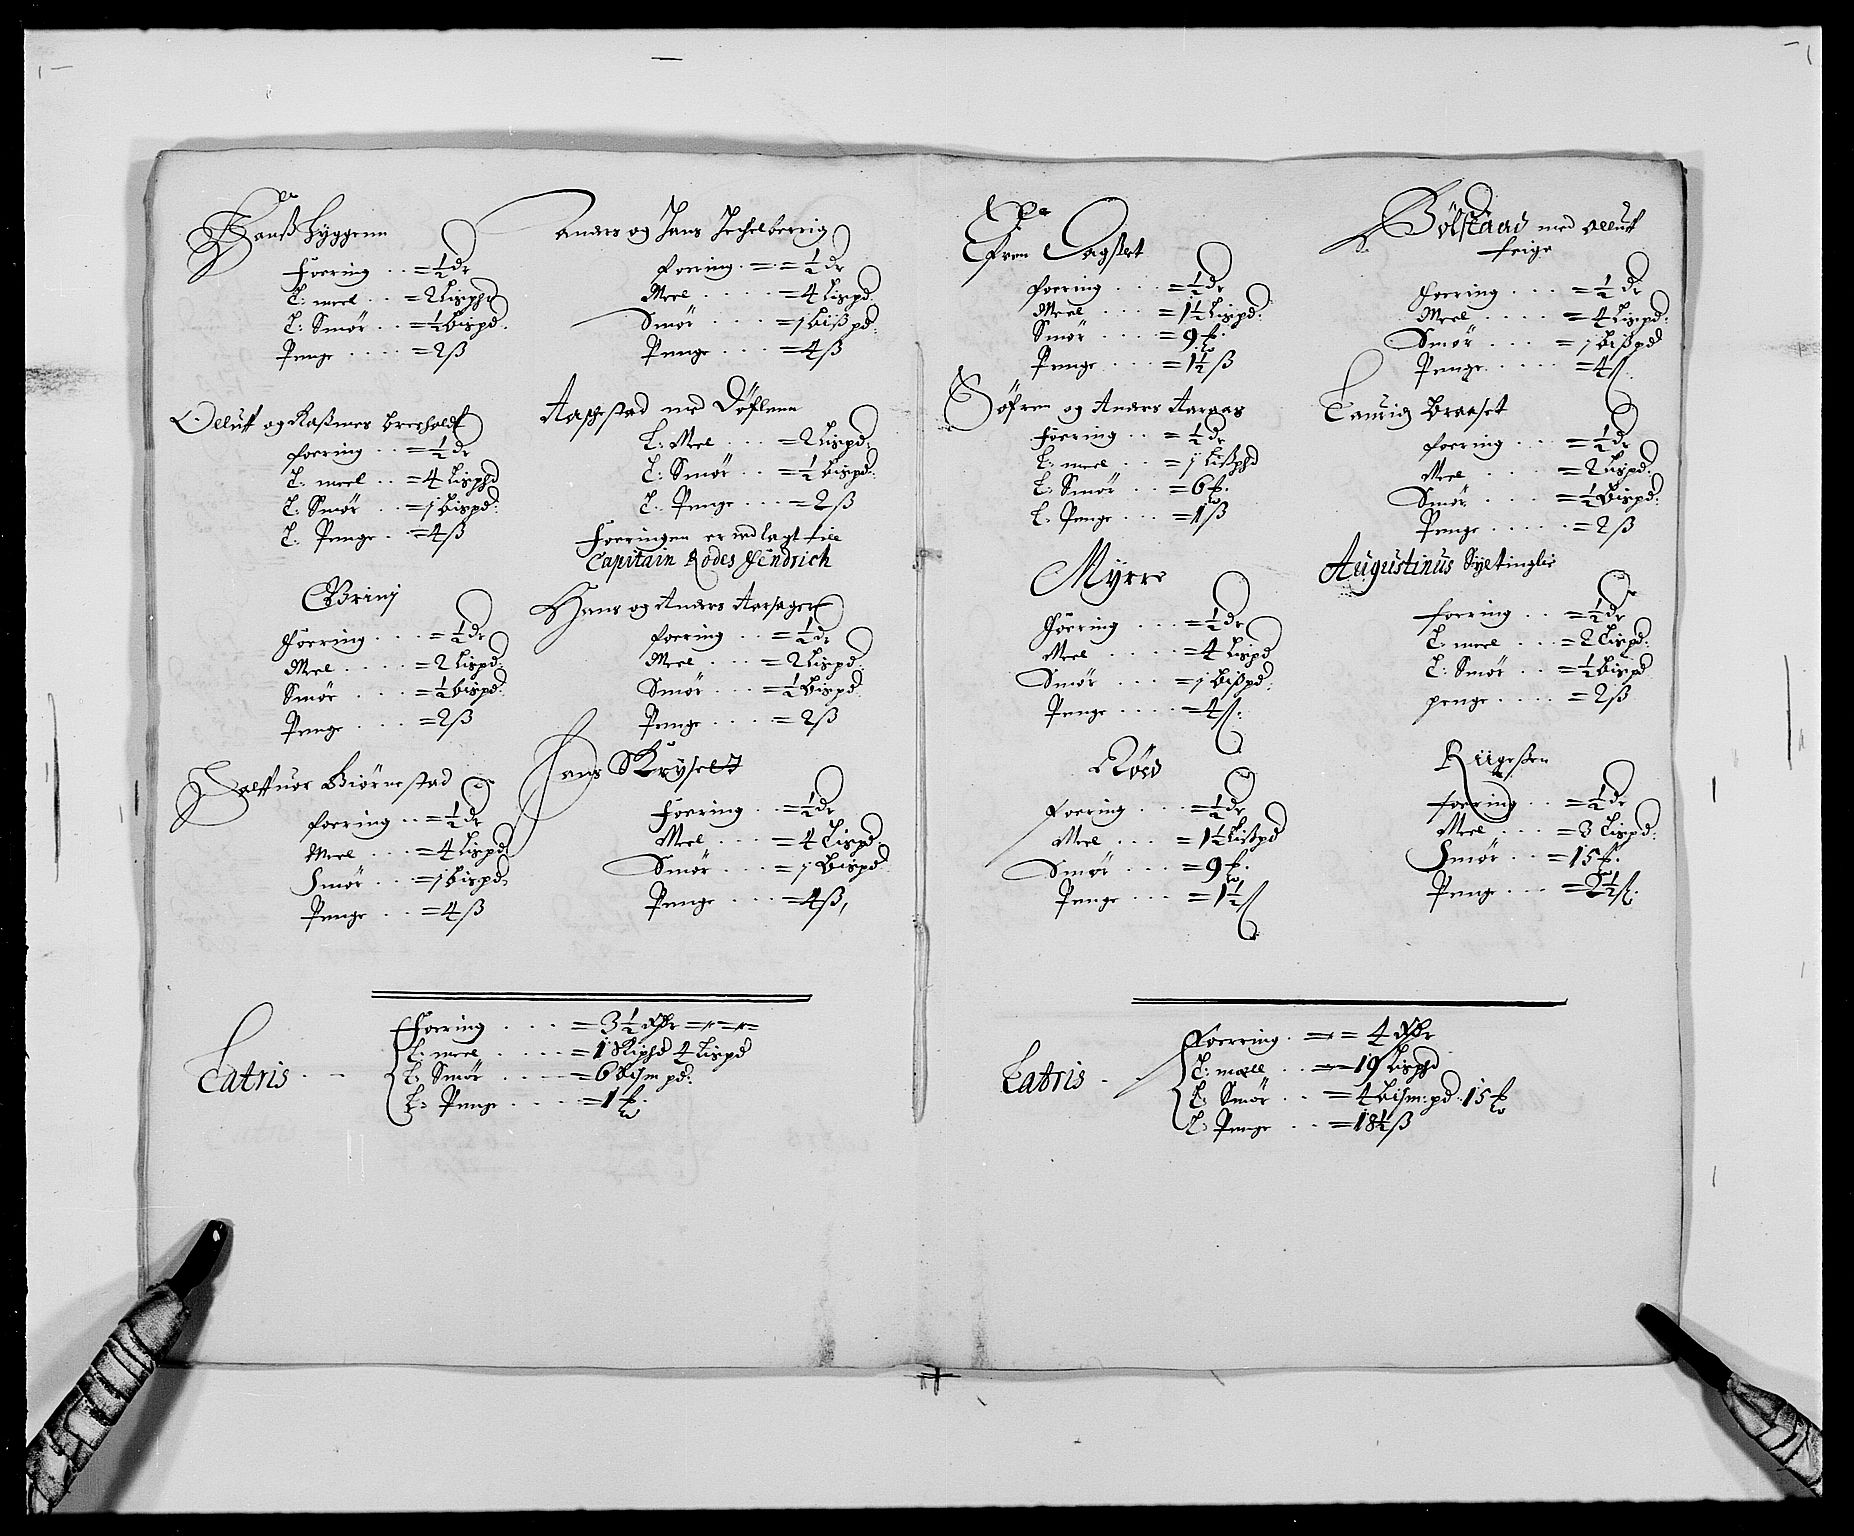 Hanß Hyggenn
Foering . . = ½ dr
L: meel . . = 2 Lisphd
L: Smør . . = ½ bispd.
Penge . . . . = 2 ß
Olluff og Raßmus Breholdt
foering . . = ½ dr
L: meel . . = 4 Lisphd
L: Smør . . = j Bispd.
L. Penge . . = 4 ß
Bring
Foering . . . = ½ dr
Meel . . . . = 2 Lispd:
Smør . . . = ½ bispd:
Penge . . . = 2 ß
Halffuor Biørnestad
foering . . = ½ dr
Meel . . . = 4 Lispd
Smør . . . = j bispd.
Penge . . = 4 ß
Anders og Jans Jechelberrig
foering . = . = ½ dr
Meel . . . . = 4 Lispd.
Smør . . . = j bißpd:
Penge . . . = 4 ß
Aaschestad med Døflenn
L: Mel . . . = 2 Lispd:
L: Smør . . = ½ Bispd:
L. Penge . . . = 2 ß
Foeringen er udlagt till
Capitain Rodes Fendrich
Hans og Anders Aarsagen
foering . . = ½ dr
Meel . . . = 2 Lispd:
Smør . . . = ½ Bispd:
Penge . . . . = 2 ß
Jans Skrysett
Foering . . = ½ dr
Meel . . . = 4 Lispd:
Smør . . . = j Bispd
Penge . . . = 4 ß,
Latris . . Foering . . . . = 3½ dlr
L: meel . . . . . = 1 Skiphd 4 Lispd
L: Smør . . . . = 6 Bism pd:
L: Penge . . . . . = 1 ℔.
Efren Lagset
foering . . . = ½ dr
Meel . . . = 1½ Lispd:
Smør . . . . = 9 ℔.
Penge . . . . = 1½ ß
Søfren og Anders Aaraas
Foering . . = ½ dr
L: meel . . = j Lißphd
L: Smør . . = 6 ℔.
L. Penge . . . = 1 ß
Myrre
Foering . . . = ½ dr
Meel . . . . . = 4 Lispd
Smør . . . = j Bißpd:
Penge . . . . = 4 ß:
Røed
Foering . . . = ½ dr
Meel . . . = 1½ Lißpd
Smør . . . = 9 ℔.
Penge . . . = 1½ ß
Bølstaad med olluff
feige
Foering . . . = ½ dr
Meel . . . . . = 4 Lispd:
Smør . . . = j Bißpd
Penge . . . . . = 4 ß.
Lauridz Braaset
foering . . . = ½ dr
Meel . . . . = 2 Lispd:
Smør . . . . = ½ Bispd:
Penge . . . . . = 2 ß
Augustinus Syltinglie
foering . . = ½ dr
L: meel . . . = 2 Lispd:
L: Smør . . . = ½ Bispd
penge . . . . = 2 ß
Riigeßen
foering . . = ½ dr
Meel . . . = 3 Lispd:
Smør . . = 15 ℔.
Penge . . . = 2½ ß.
Latris . . Foerring . = = 4 dlr
L: meell . . . = 19 Lisphd
L: Smør . . = 4 Bism: pd. 15 ℔
L: Penge . . = 18½ ß